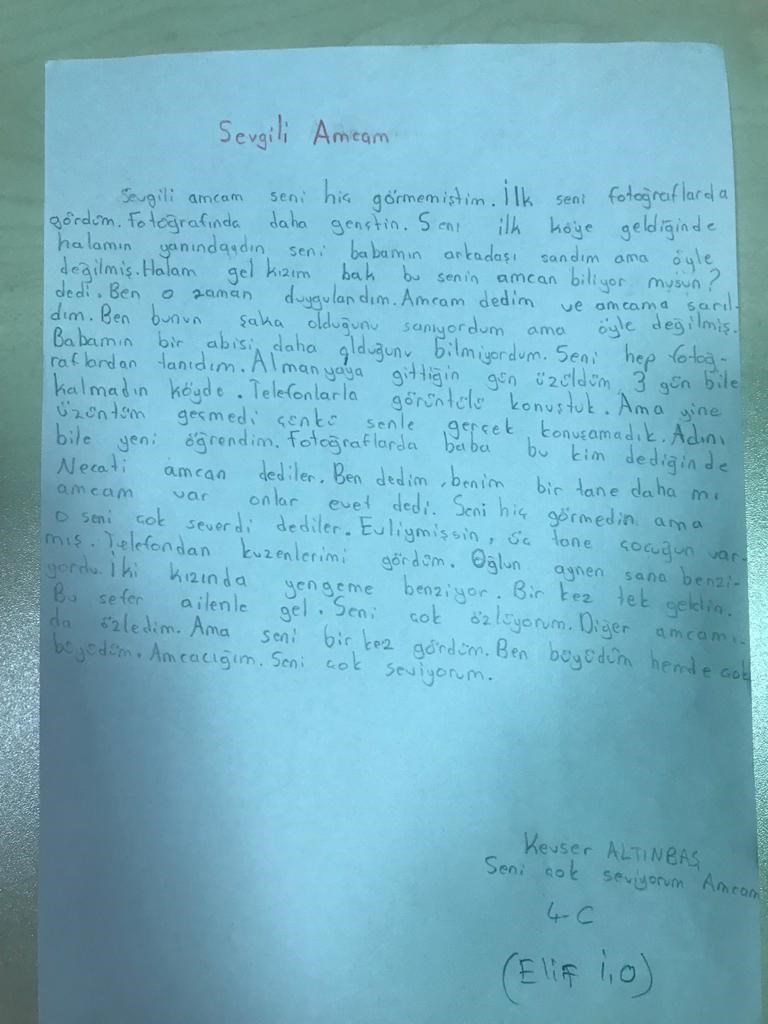 Sevgili Amcam
Sevgili amcam seni hiç görmemiştim. İlk seni fotoğraflarda
gördüm. Fotoğrafında daha gençtin. Seni ilk köye geldiğinde
halamın yanındaydın seni babamın arkadaşı sandım ama öyle
değilmiş. Halam gel kızım bak bu senin amcan biliyor musun?
dedi. Ben o zaman duygulandım. Amcam dedim ve amcama sarıl-
dım. Ben bunun şaka olduğunu sanıyordum ama öyle değilmiş.
Babamın bir abisi daha olduğunu bilmiyordum. Seni hep fotoğ-
raflardan tanıdım. Almanyaya gittiğin gün üzüldüm 3 gün bile
kalmadın köyde. Telefonlarla görüntülü konuştuk. Ama yine
üzüntüm geçmedi çünkü senle gerçek konuşamadık. Adını
bile yeni öğrendim. Fotoğraflarda baba bu kim dediğinde
Necati amcan dediler. Ben dedim, benim bir tane daha mı
amcam var onlar evet dedi. Seni hiç görmedin ama
o seni çok severdi dediler. Evliymişsin, üç tane çocuğun var-
mış. Telefondan kuzenlerimi gördüm. Oğlun aynen sana benzi-
yordu. İki kızında yengeme benziyor. Bir kez tek geldin.
Bu sefer ailenle gel. Seni çok özlüyorum. Diğer amcamı-
da özledim. Ama seni bir kez gördüm. Ben büyüdüm hemde çok
büyüdüm. Amcacığım. Seni çok seviyorum.
Kevser ALTINBAŞ
Seni çok seviyorum Amcam
4-C
(Elif İ.O)